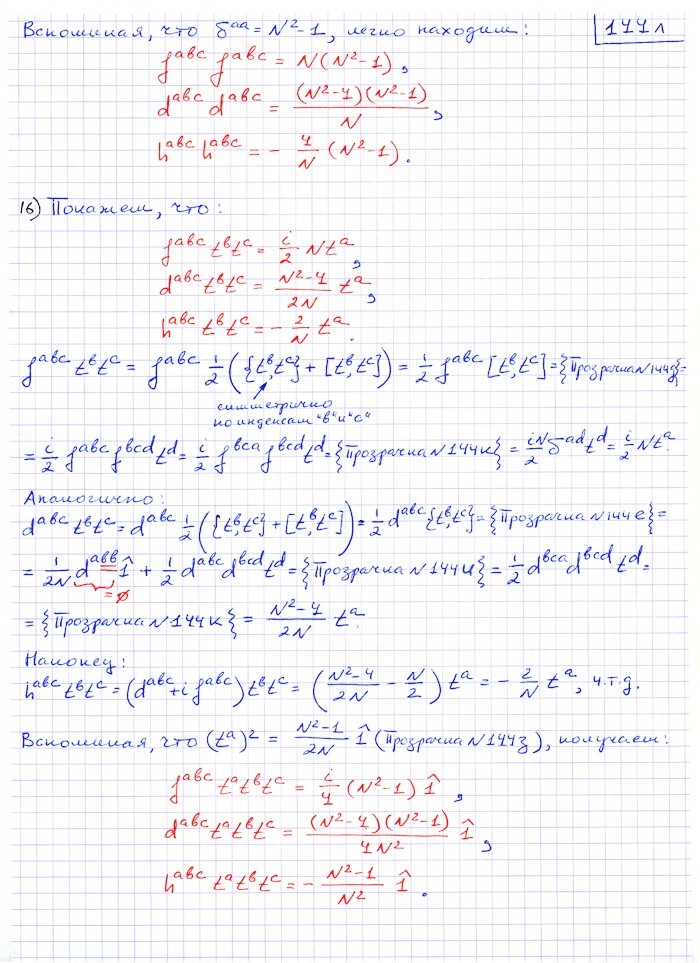 144л
Вспоминая, что δᵃᵃ = N² − 1, легко находим:
fᵃᵇᶜ fᵃᵇᶜ = N(N² − 1),
dᵃᵇᶜ dᵃᵇᶜ = (N² − 4)(N² − 1) / N,
hᵃᵇᶜ hᵃᵇᶜ = − 4/N (N² − 1).
16) Покажем, что:
fᵃᵇᶜ tᵇtᶜ = i/2 N tᵃ,
dᵃᵇᶜ tᵇtᶜ = (N² − 4)/2N tᵃ,
hᵃᵇᶜ tᵇtᶜ = − 2/N tᵃ.
fᵃᵇᶜ tᵇtᶜ = fᵃᵇᶜ 1/2 ({tᵇ,tᶜ} + [tᵇ,tᶜ]) = 1/2 fᵃᵇᶜ [tᵇ,tᶜ] = {Прозрачка N 144д} =
симметрично
по индексам "b" и "c"
= i/2 fᵃᵇᶜ fᵇᶜᵈ tᵈ = i/2 fᵇᶜᵃ fᵇᶜᵈ tᵈ = {Прозрачка N 144к} = iN/2 δᵃᵈ tᵈ = i/2 N tᵃ.
Аналогично:
dᵃᵇᶜ tᵇtᶜ = dᵃᵇᶜ 1/2 ({tᵇ,tᶜ} + [tᵇ,tᶜ]) = 1/2 dᵃᵇᶜ {tᵇ,tᶜ} = {Прозрачка N 144е} =
= 1/2N dᵃᵇᵇ 1̂ + 1/2 dᵃᵇᶜ dᵇᶜᵈ tᵈ = {Прозрачка N 144и} = 1/2 dᵇᶜᵃ dᵇᶜᵈ tᵈ =
= ∅
= {Прозрачка N 144к} = (N² − 4)/2N tᵃ.
Наконец:
hᵃᵇᶜ tᵇtᶜ = (dᵃᵇᶜ + i fᵃᵇᶜ) tᵇtᶜ = ((N² − 4)/2N − N/2) tᵃ = − 2/N tᵃ, ч.т.д.
Вспоминая, что (tᵃ)² = (N² − 1)/2N 1̂ (Прозрачка N 144з), получаем:
fᵃᵇᶜ tᵃtᵇtᶜ = i/4 (N² − 1) 1̂,
dᵃᵇᶜ tᵃtᵇtᶜ = (N² − 4)(N² − 1) / 4N² 1̂,
hᵃᵇᶜ tᵃtᵇtᶜ = − (N² − 1)/N² 1̂.